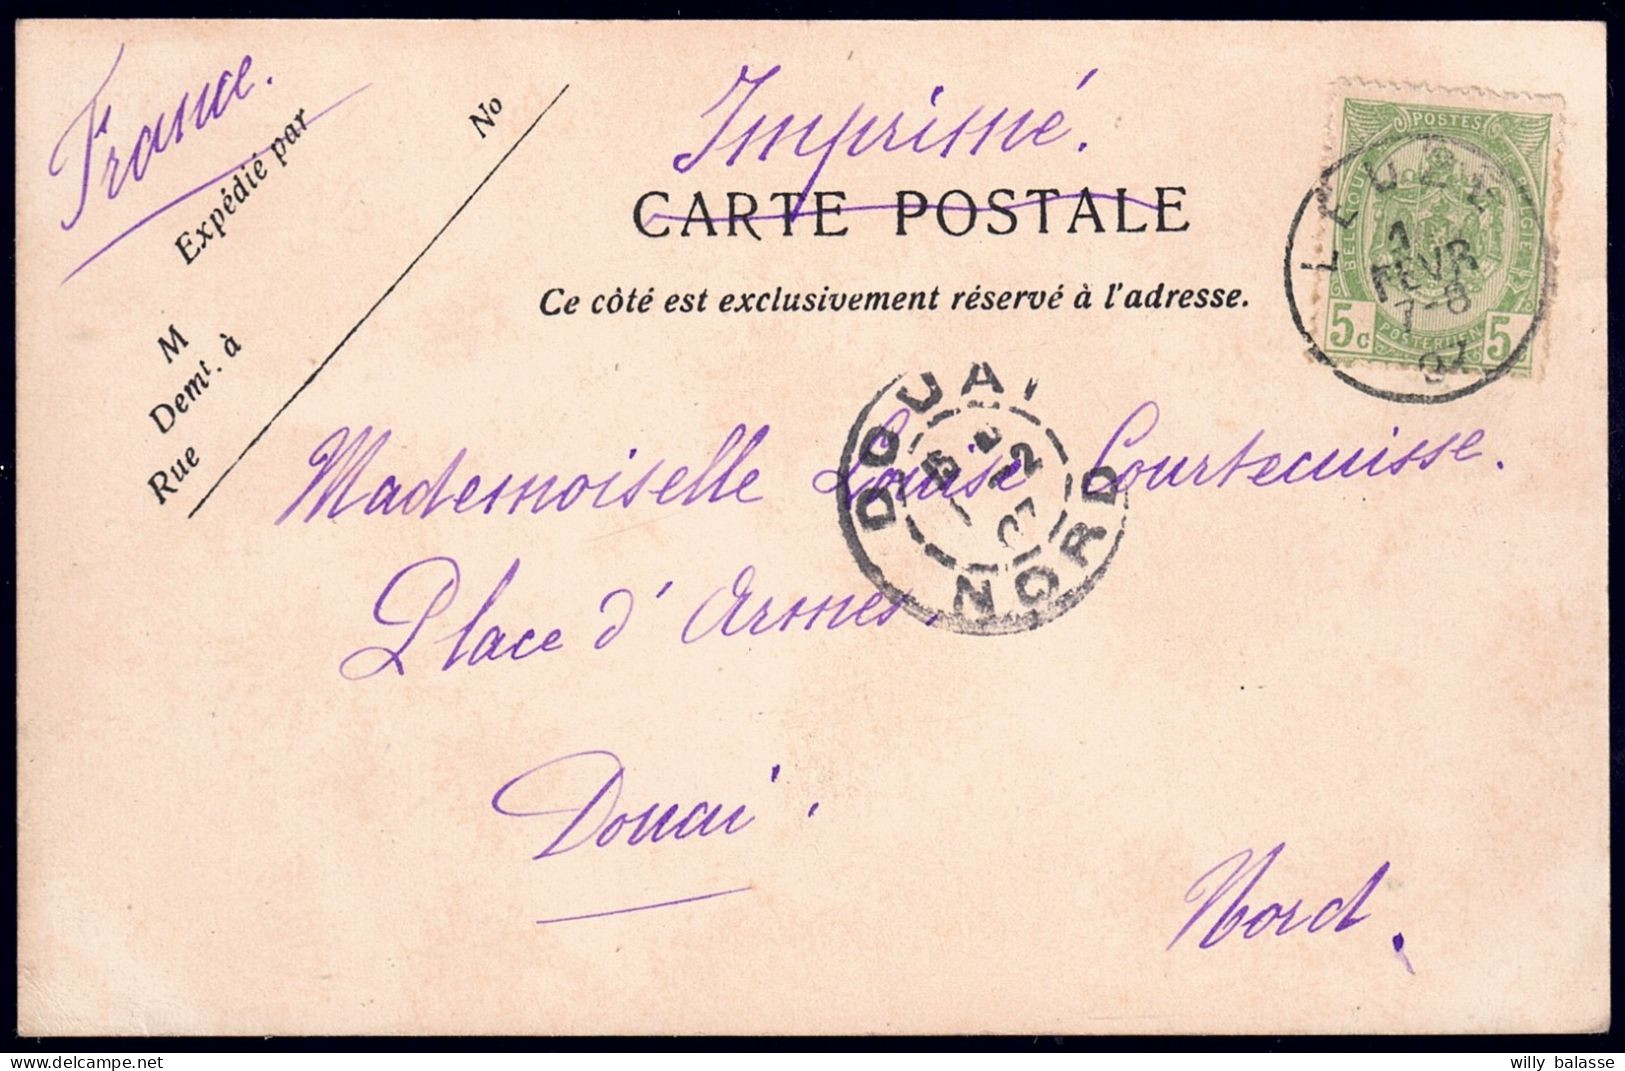 France.
Expédié par
No
M
Demt. à
Rue
Imprimé.
CARTE POSTALE
Ce côté est exclusivement réservé à l'adresse.
POSTES
BELGIQUE
5c
5
POSTERIJEN
LEUZE
1
FEVR
7-8
07
DOUAI
2
07
NORD
Mademoiselle Louise Courtecuisse.
Place d'Armes,
Douai.
Nord.
willy balasse